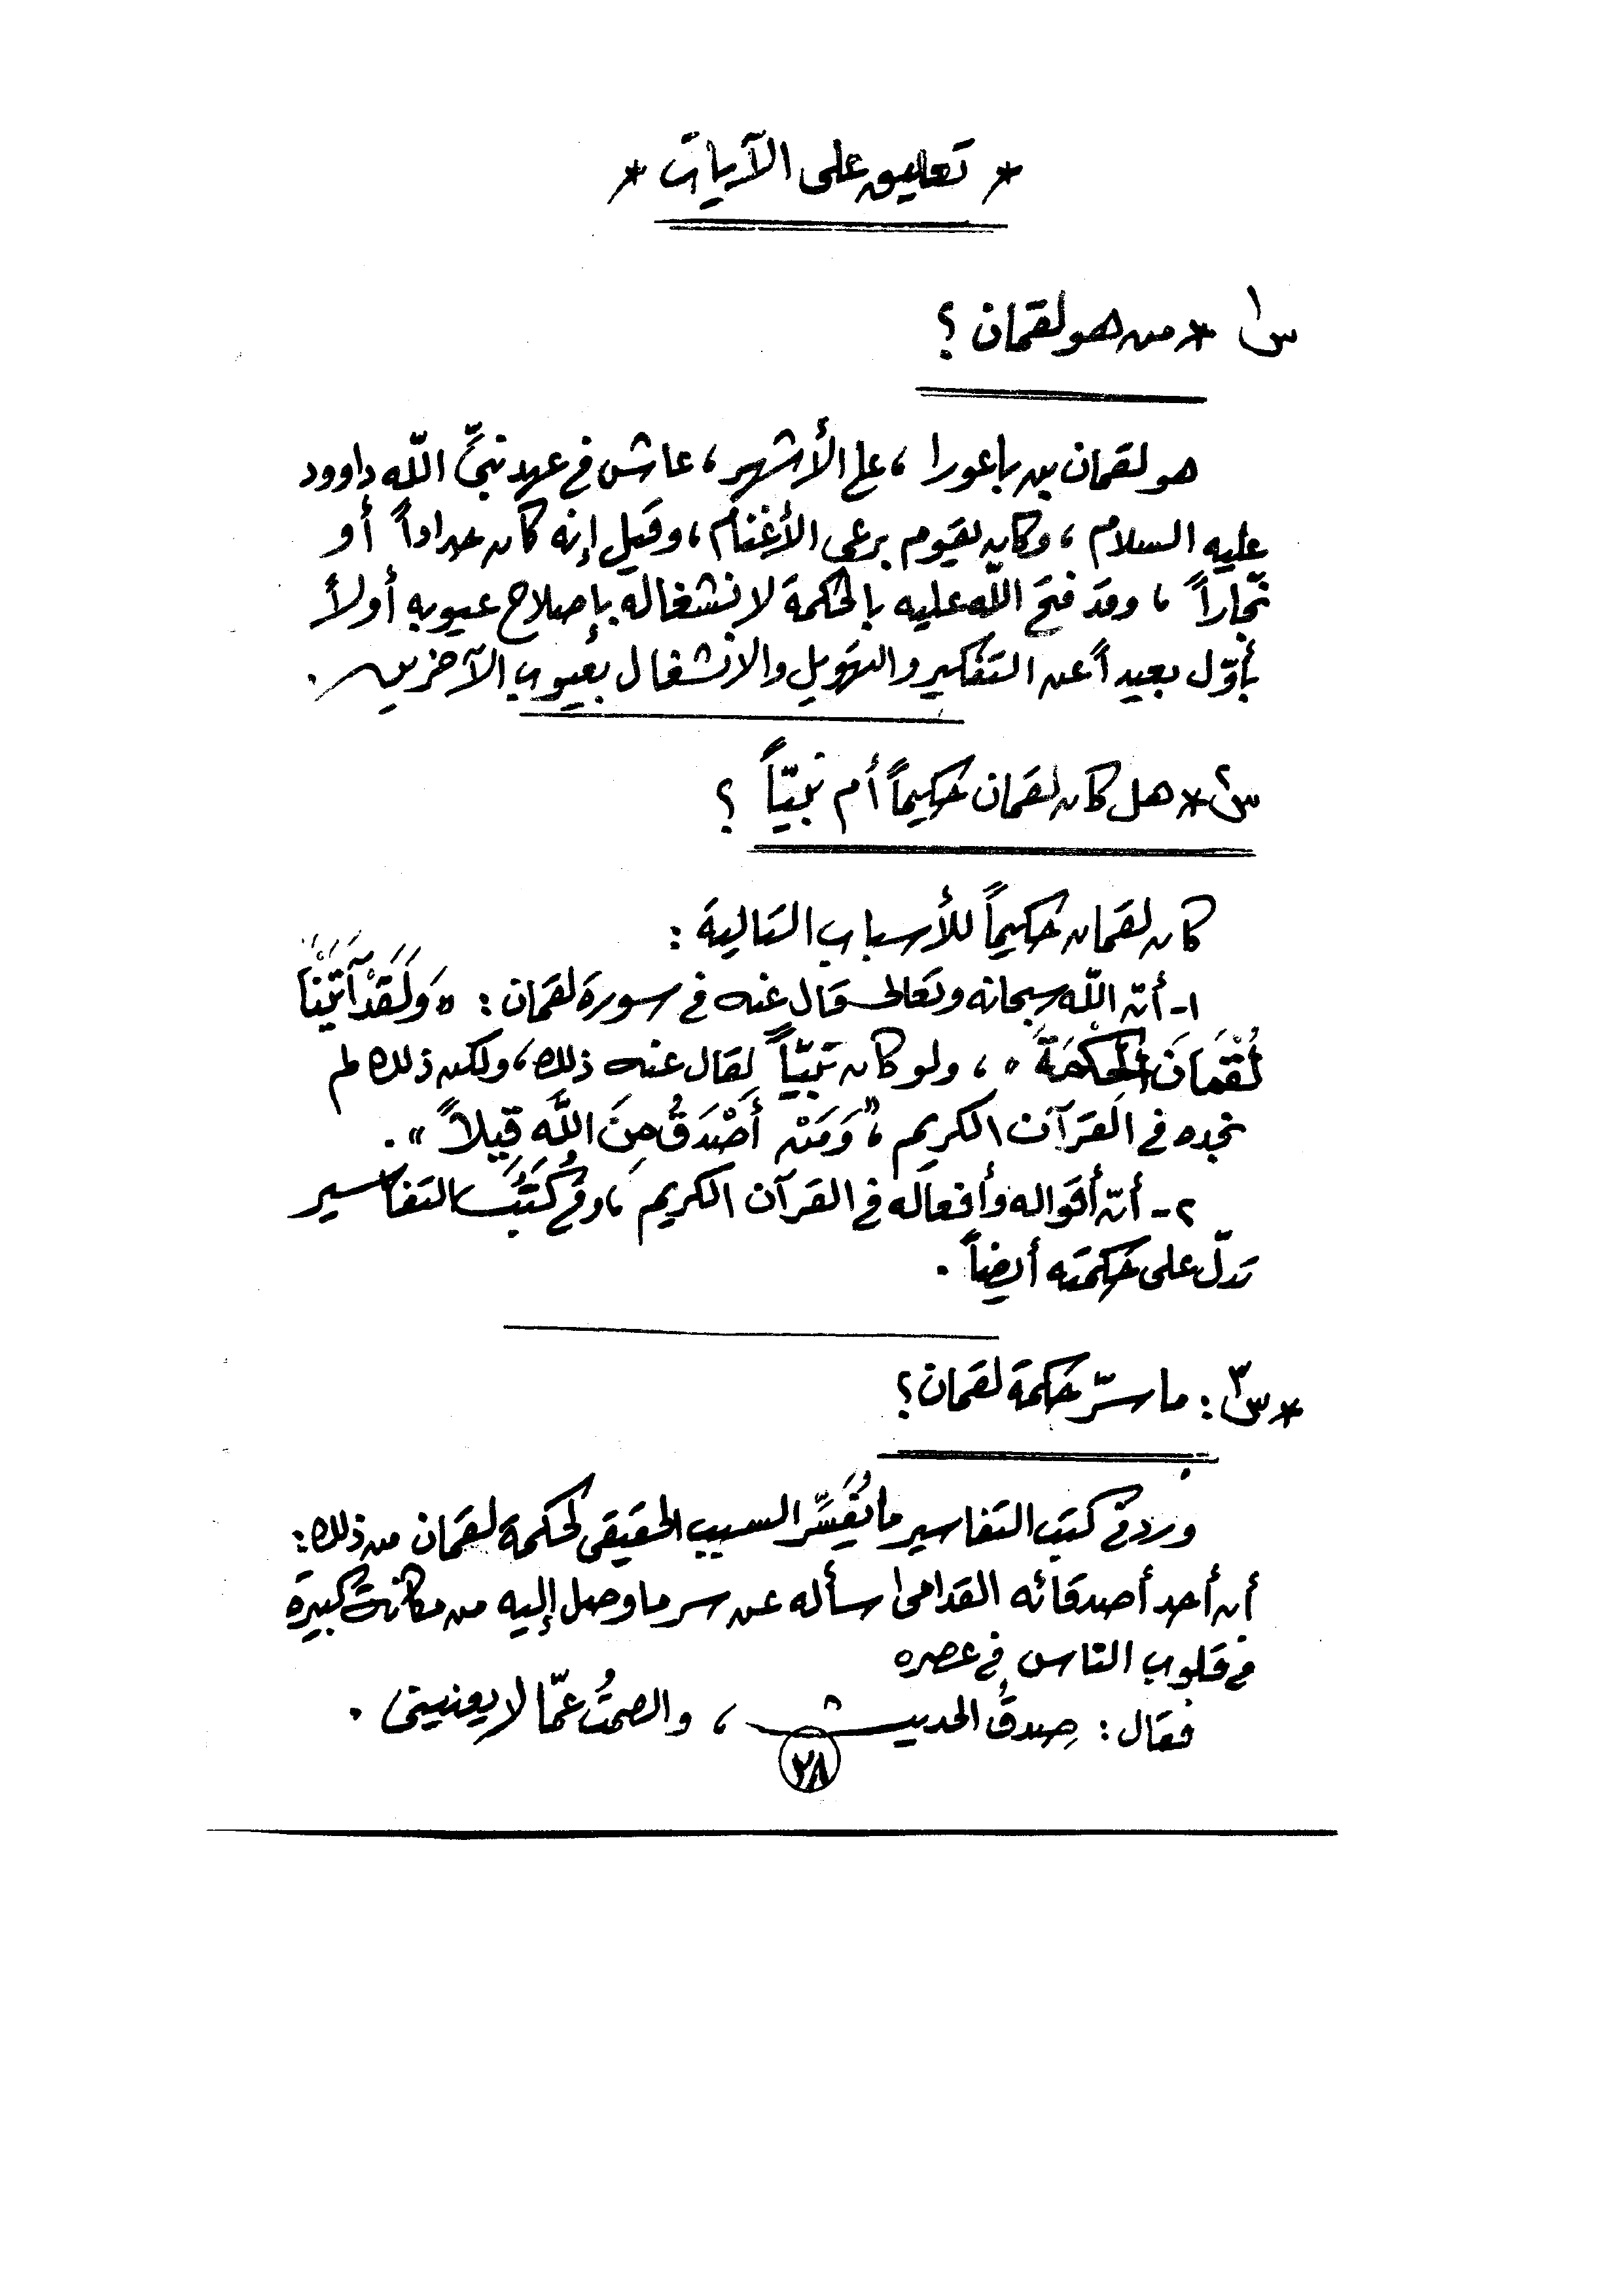 * تعليق على الآيات *
س١ * من هو لقمان ؟
هو لقمان بن باعورا ، على الأشهر ، عاش في عهد نبيِّ اللّه داوود
عليه السلام ، وكان يقوم برعي الأغنام ، وقيل إنه كان حداداً أو
نجّاراً ، وقد فتح اللّه عليه بالحكمة لانشغاله بإصلاح عيوبه أولاً
بأوّل بعيداً عن التفكير والتهويل والانشغال بعيوب الآخرين .
س٢ * هل كان لقمان حكيماً أم نبيّاً ؟
كان لقمان حكيماً للأسباب التالية :
١- أنّ اللّه سبحانه وتعالى قال عنه في سورة لقمان : « وَلَقَدْ آتَيْنَا
لُقْمَانَ الْحِكْمَةَ » ، ولو كان نبيّاً لقال عنه ذلك ، ولكن ذلك لم
نجده في القرآن الكريم ، « وَمَنْ أَصْدَقُ مِنَ اللَّهِ قِيلاً » .
٢- أنّ أقواله وأفعاله في القرآن الكريم ، وفي كُتُب التفاسير
تدلّ على حكمته أيضاً .
* س٣ : ما سرّ حكمة لقمان ؟
ورد في كتب التفاسير ما يُفَسِّر السبب الحقيقي لحكمة لقمان من ذلك :
أن أحد أصدقائه القدامى سأله عن سر ما وصل إليه من مكانة كبيرة
في قلوب الناس في عصره
فقال : صِدقُ الحديث ، والصمتُ عمّا لا يعنيني .
٢٨